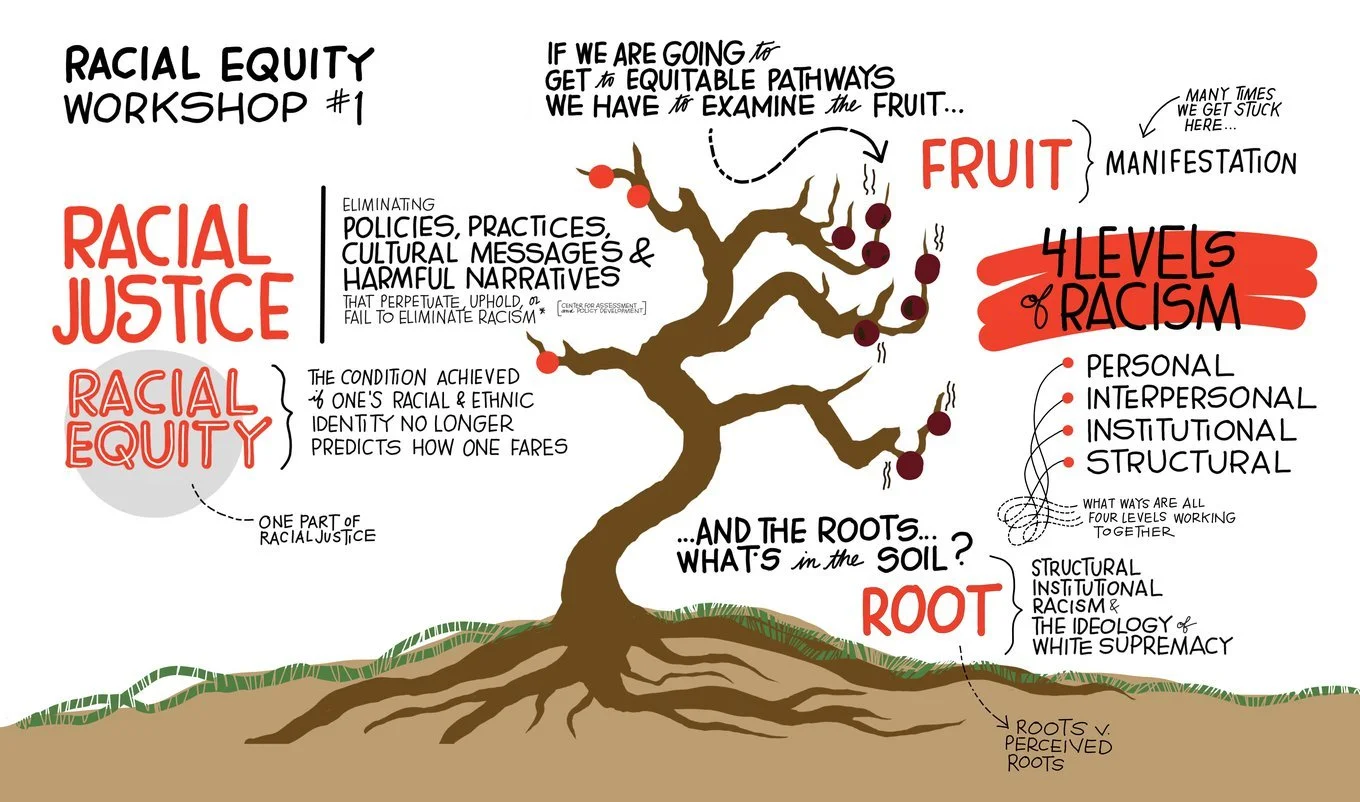 RACIAL EQUITY
WORKSHOP #1
IF WE ARE GOING to
GET to EQUITABLE PATHWAYS
WE HAVE to EXAMINE the FRUIT...
MANY TIMES
WE GET STUCK
HERE...
FRUIT
MANIFESTATION
RACIAL
JUSTICE
ELIMINATING
POLICIES, PRACTICES,
CULTURAL MESSAGES &
HARMFUL NARRATIVES
THAT PERPETUATE, UPHOLD, or
FAIL TO ELIMINATE RACISM*
[CENTER FOR ASSESSMENT
and POLICY DEVELOPMENT]
4 LEVELS
of RACISM
PERSONAL
INTERPERSONAL
INSTITUTIONAL
STRUCTURAL
WHAT WAYS ARE ALL
FOUR LEVELS WORKING
TOGETHER
RACIAL
EQUITY
THE CONDITION ACHIEVED
if ONE'S RACIAL & ETHNIC
IDENTITY NO LONGER
PREDICTS HOW ONE FARES
ONE PART OF
RACIAL JUSTICE
...AND THE ROOTS...
WHAT'S in the SOIL?
ROOT
STRUCTURAL
INSTITUTIONAL
RACISM &
THE IDEOLOGY of
WHITE SUPREMACY
ROOTS V.
PERCEIVED
ROOTS